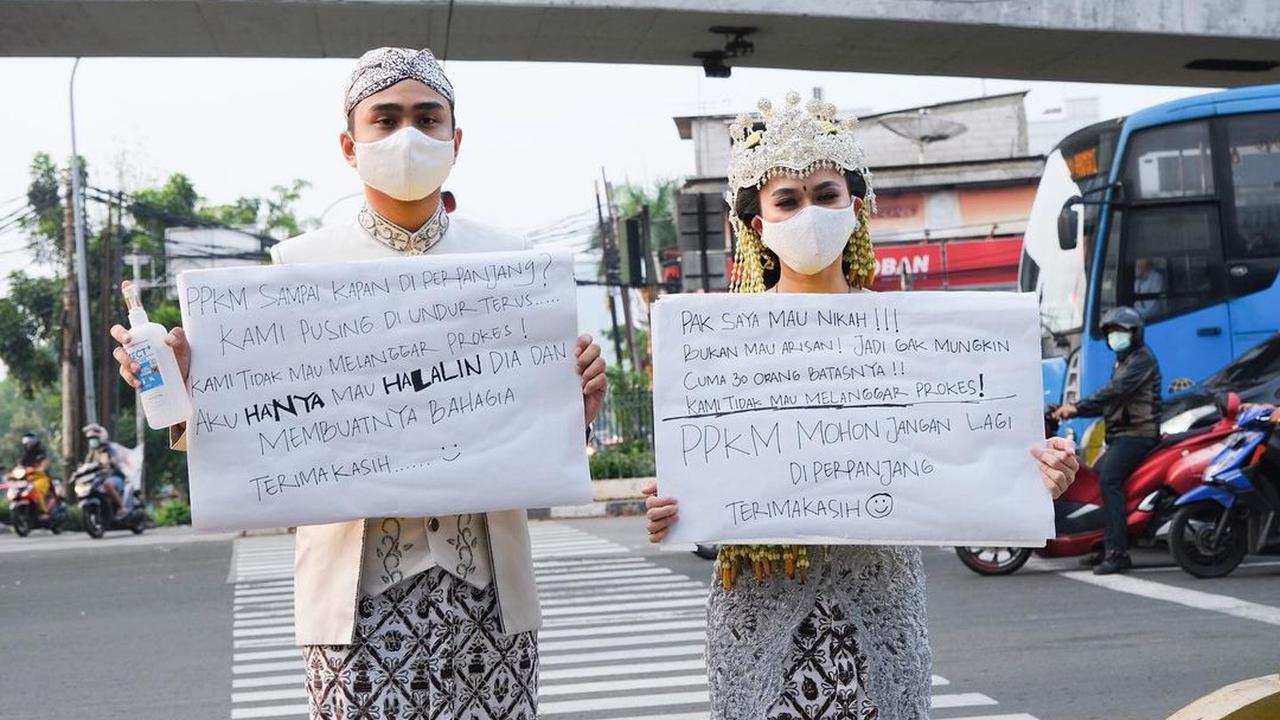 PPKM SAMPAI KAPAN DI PERPANJANG?
KAMI PUSING DI UNDUR TERUS.....
KAMI TIDAK MAU MELANGGAR PROKES!
AKU HANYA MAU HALALIN DIA DAN
MEMBUATNYA BAHAGIA
TERIMAKASIH.......
PAK SAYA MAU NIKAH!!!
BUKAN MAU ARISAN! JADI GAK MUNGKIN
CUMA 30 ORANG BATASNYA!!
KAMI TIDAK MAU MELANGGAR PROKES!
PPKM MOHON JANGAN LAGI
DIPERPANJANG
TERIMAKASIH